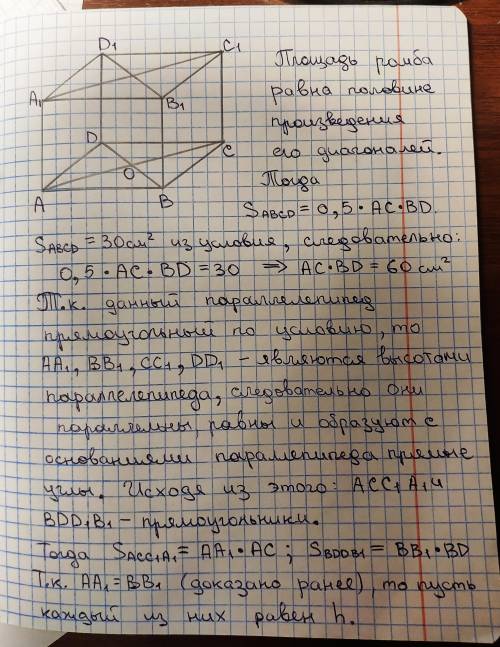 D₁
C₁
Площадь ромба
A₁
B₁
равна половине
произведения
D
C
его диагоналей.
O
Тогда
A
B
S_ABCD = 0,5 · AC · BD.
S_ABCD = 30см² из условия, следовательно:
0,5 · AC · BD = 30 ⇒ AC · BD = 60 см²
Т.к. данный параллелепипед
прямоугольный по условию, то
AA₁, BB₁, CC₁, DD₁ - являются высотами
параллелепипеда, следовательно они
параллельны, равны и образуют с
основаниями параллепипеда прямые
углы. Исходя из этого: ACC₁A₁ и
BDD₁B₁ - прямоугольники.
Тогда S_ACC₁A₁ = AA₁ · AC ; S_BDDB₁ = BB₁ · BD
Т.к. AA₁ = BB₁ (доказано ранее), то пусть
каждый из них равен h.